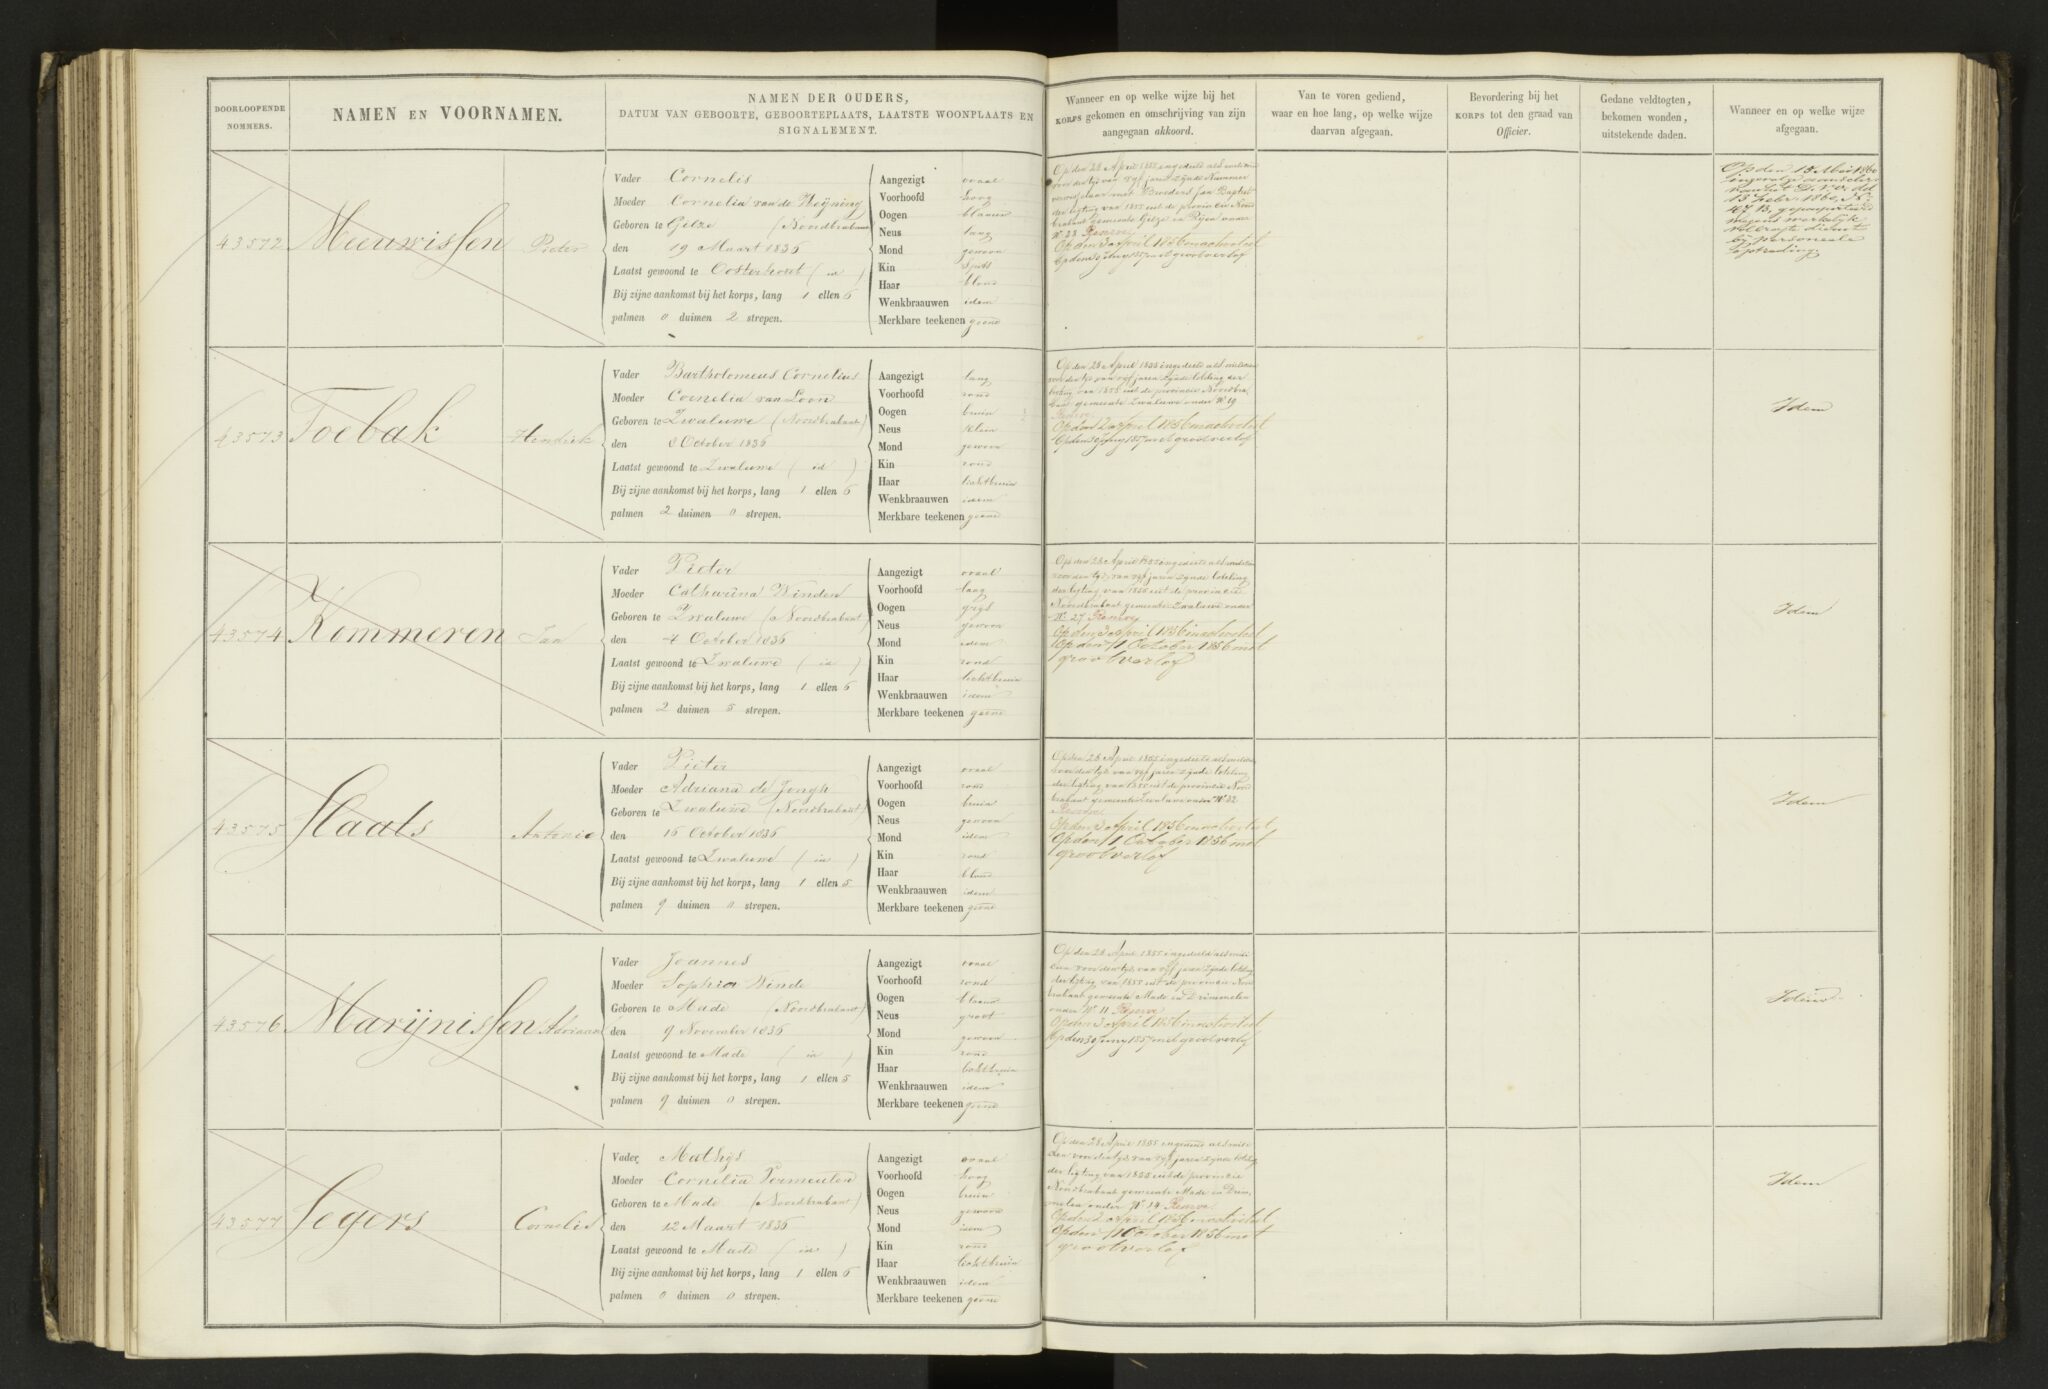 DOORLOOPENDE
NOMMERS.
NAMEN EN VOORNAMEN.
NAMEN DER OUDERS,
DATUM VAN GEBOORTE, GEBOORTEPLAATS, LAATSTE WOONPLAATS EN
SIGNALEMENT.
Wanneer en op welke wijze bij het
KORPS gekomen en omschrijving van zijn
aangegaan akkoord.
Van te voren gediend,
waar en hoe lang, op welke wijze
daarvan afgegaan.
Bevordering bij het
KORPS tot den graad van
Officier.
Gedane veldtogten,
bekomen wonden,
uitstekende daden.
Wanneer en op welke wijze
afgegaan.
43572 Meeuwissen Pieter
Vader Cornelis
Moeder Cornelia van de
Geboren te Gilze (Noordbrabant
den 19 Maart 1836
Laatst gewoond te Oosterhout (id)
Bij zijne aankomst bij het korps, lang 1 ellen 6
palmen 0 duimen 2 strepen.
Aangezigt ovaal
Voorhoofd hoog
Oogen blaauw
Neus lang
Mond gewoon
Kin spits
Haar blond
Wenkbraauwen idem
Merkbare teekenen geene
Op den 28 April 1855 ingedeeld als milicien
voor den tijd van vyf jaren zynde Nummer
verwisselaar met Jan Baptist
der ligting van 1855 uit de provincie Noord
brabant gemeente Gilze en Rijen onder
No. 23 Reserve
Op den 3 April 1856 in activiteit
Op den 30 Juny 1857 met groot verlof
Op den 15 Mei 1860
13 Febr. 1860, No.
47 B, gepasporteerd
wegens werkelijk
volbragte dienst
bij personeele
optreding.
43573 Toebak Hendrik
Vader Bartholomeus Cornelius
Moeder Cornelia van Loon
Geboren te Zwaluwe (Noordbrabant)
den 8 October 1836
Laatst gewoond te Zwaluwe (id)
Bij zijne aankomst bij het korps, lang 1 ellen 6
palmen 2 duimen 0 strepen.
Aangezigt lang
Voorhoofd rond
Oogen bruin
Neus klein
Mond gewoon
Kin rond
Haar lichtbruin
Wenkbraauwen idem
Merkbare teekenen geene
Op den 28 April 1855 ingedeeld als milicien
voor den tyd van vyf jaren zynde loteling der
ligting van 1855 uit de provincie Noordbra
bant gemeente Zwaluwe onder No 19
Reserve
Op den 2 April 1856 in activiteit
Op den 30 Juny 1857 met groot verlof
Idem
43574 Kommeren Jan
Vader Pieter
Moeder Catharina Winden
Geboren te Zwaluwe (Noordbrabant)
den 4 October 1836
Laatst gewoond te Zwaluwe (id)
Bij zijne aankomst bij het korps, lang 1 ellen 6
palmen 2 duimen 5 strepen.
Aangezigt ovaal
Voorhoofd laag
Oogen grys
Neus gewoon
Mond idem
Kin rond
Haar lichtbruin
Wenkbraauwen idem
Merkbare teekenen geene
Op den 28 April 1855 ingedeeld als milicien
voor den tyd van vyf jaren zynde loteling
der ligting van 1855 uit de provincie
Noordbrabant gemeente Zwaluwe onder
No. 27 Reserve
Op den 3 April 1856 in activiteit
Op den 11 October 1856 met
groot verlof
Idem
43575 Staals Antonie
Vader Pieter
Moeder Adriana de Jongh
Geboren te Zwaluwe (Noordbrabant)
den 16 October 1836
Laatst gewoond te Zwaluwe (id)
Bij zijne aankomst bij het korps, lang 1 ellen 5
palmen 9 duimen 0 strepen.
Aangezigt ovaal
Voorhoofd rond
Oogen bruin
Neus gewoon
Mond idem
Kin rond
Haar blond
Wenkbraauwen idem
Merkbare teekenen geene
Op den 28 April 1855 ingedeeld als milicien
voor den tyd van vyf jaren zynde loteling
der ligting van 1855 uit de provincie Noord
brabant gemeente Zwaluwe onder No 32
Reserve
Op den 3 April 1856 in activiteit
Op den 11 October 1856 met
groot verlof
Idem
43576 Marijnissen Adriaan
Vader Joannes
Moeder Sophia Winde
Geboren te Made (Noordbrabant)
den 9 November 1836
Laatst gewoond te Made (id)
Bij zijne aankomst bij het korps, lang 1 ellen 5
palmen 9 duimen 0 strepen.
Aangezigt ovaal
Voorhoofd rond
Oogen blaauw
Neus groot
Mond gewoon
Kin rond
Haar lichtbruin
Wenkbraauwen idem
Merkbare teekenen geene
Op den 28 April 1855 ingedeeld als mili
cien voor den tyd van vyf jaren zynde loteling
der ligting van 1855 uit de provincie Noord
brabant gemeente Made en Drimmelen
onder No. 11 Reserve
Op den 3 April 1856 in activiteit
Op den 30 Juny 1857 met groot verlof
Idem
43577 Segers Cornelis
Vader Mathys
Moeder Cornelia Vermeulen
Geboren te Made (Noordbrabant)
den 12 Maart 1836
Laatst gewoond te Made (id)
Bij zijne aankomst bij het korps, lang 1 ellen 6
palmen 0 duimen 0 strepen.
Aangezigt ovaal
Voorhoofd hoog
Oogen bruin
Neus gewoon
Mond idem
Kin rond
Haar lichtbruin
Wenkbraauwen idem
Merkbare teekenen geene
Op den 28 April 1855 ingedeeld als mili
cien voor den tyd van vyf jaren zynde loteling
der ligting van 1855 uit de provincie
Noordbrabant gemeente Made en Drim
melen onder No. 14 Reserve
Op den 2 April 1856 in activiteit
Op den 11 October 1856 met
groot verlof
Idem